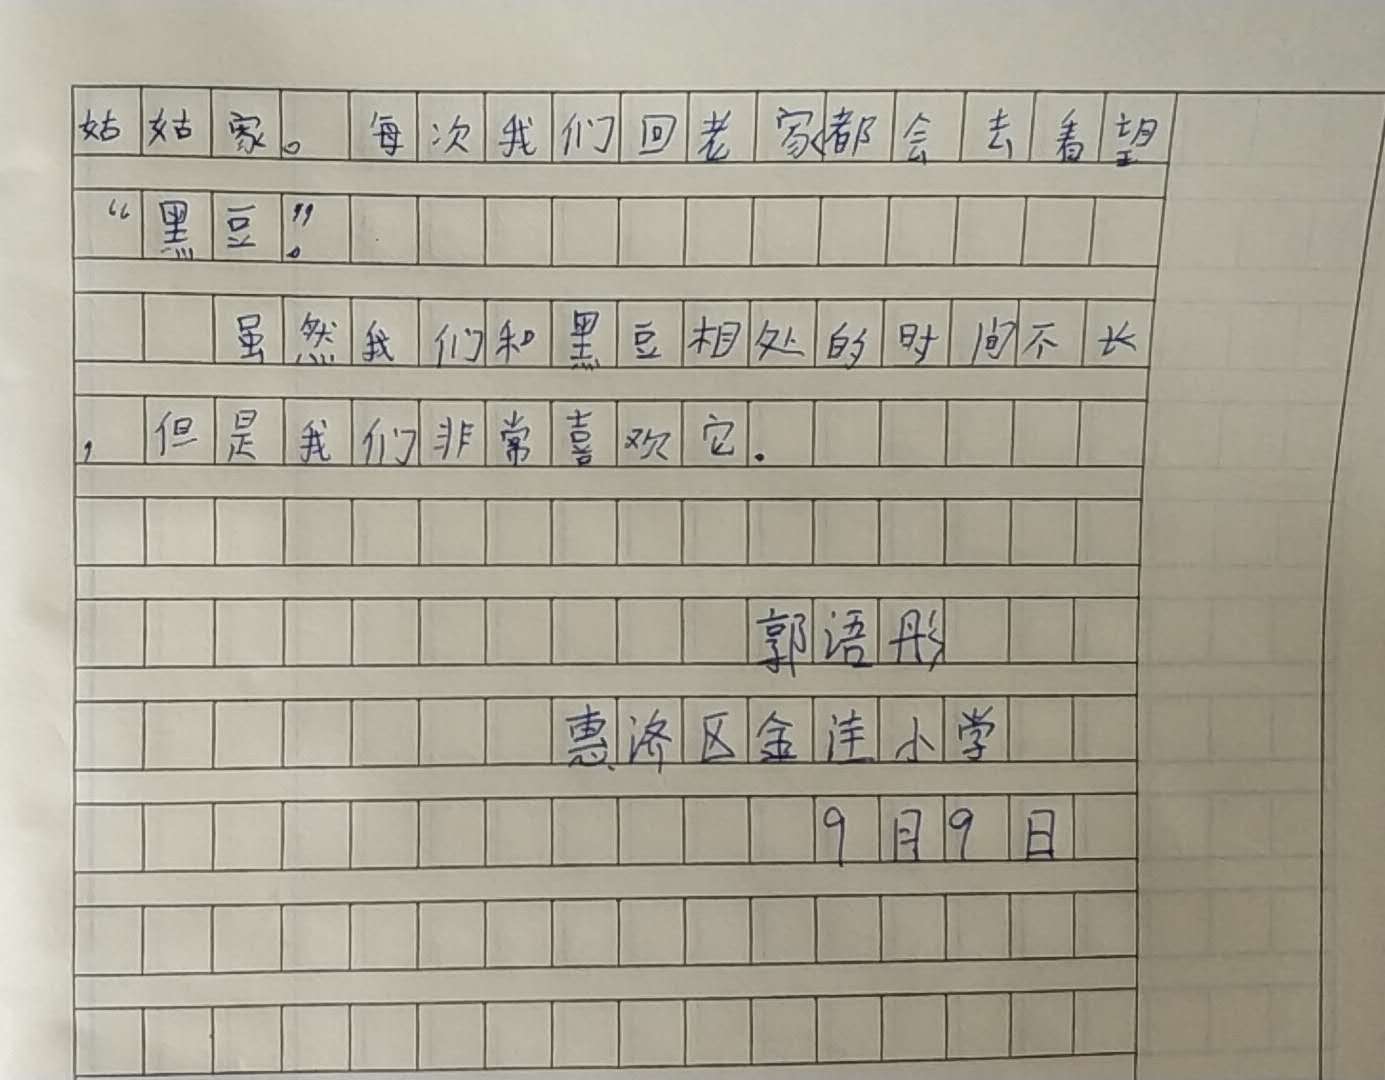 姑姑家。每次我们回老家都会去看望
“黑豆”。
虽然我们和黑豆相处的时间不长
，但是我们非常喜欢它.
郭语彤
惠济区金洼小学
9月9日